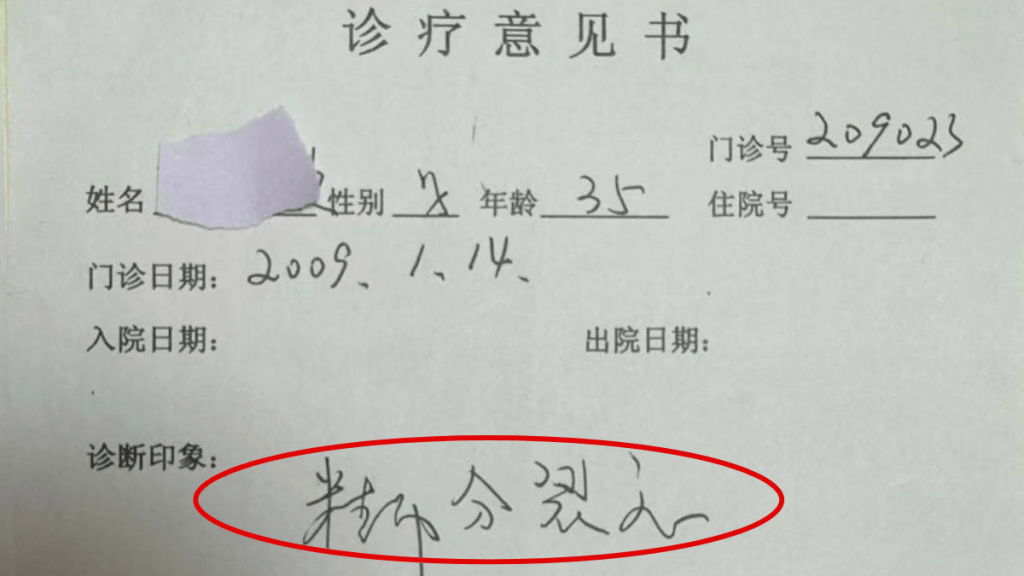 诊疗意见书
门诊号 209023
姓名 性别 女 年龄 35 住院号
门诊日期：2009、1、14、
入院日期： 出院日期：
诊断印象：
精神分裂症